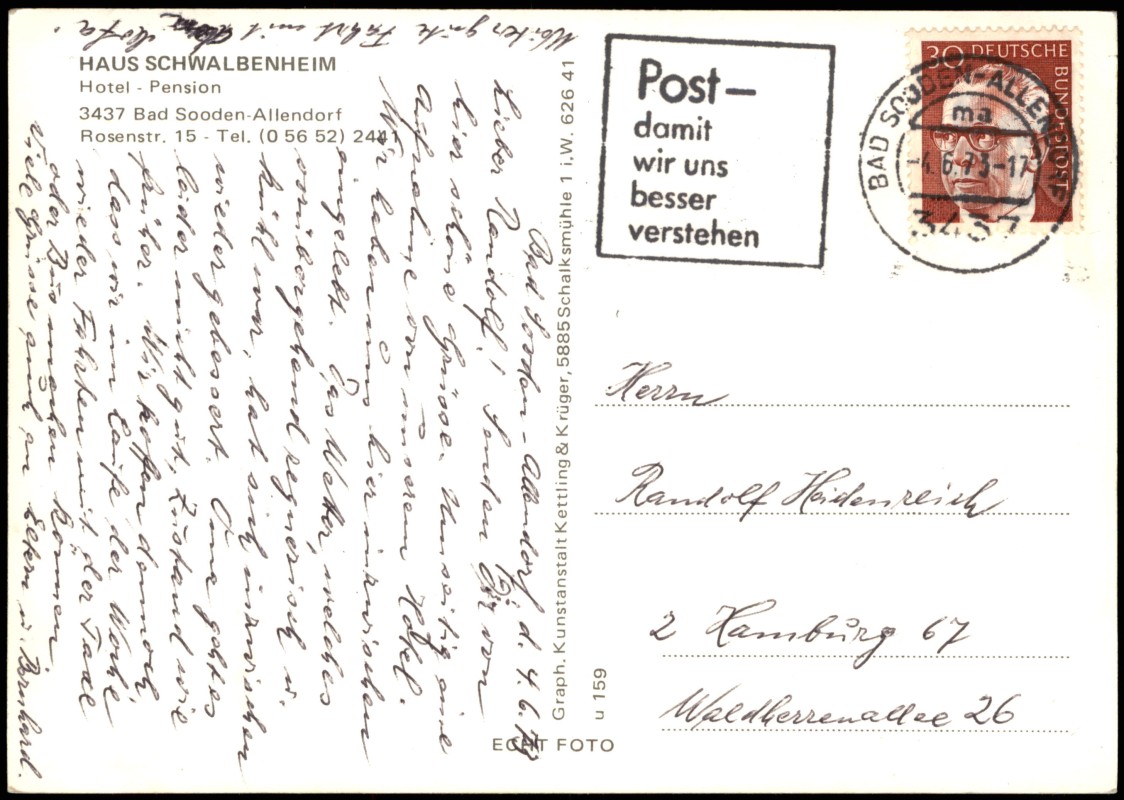 HAUS SCHWALBENHEIM
Hotel - Pension
3437 Bad Sooden-Allendorf
Rosenstr. 15 - Tel. (0 56 52) 2441
Bad Sooden-Allendorf d. 4.6.73
Lieber Randolf! Senden Dir von
hier schöne Grüsse. Umseitig eine
Aufnahme von unserem Hotel.
Wir haben uns hier inzwischen
eingelebt. Das Wetter, welches
vorübergehend regnerisch u.
kühl war, hat sich inzwischen
wieder gebessert. Oma geht es
leider nicht gut, Zustand wie
früher. Wir hoffen dennoch,
dass wir im Laufe der Woche
wieder Fahrten mit der Taxe
oder Bus machen können.
Viele Grüsse auch an Eltern u. Bernhard.
Weiter gute Fahrt mit dem Mofa.
Graph. Kunstanstalt Kettling & Krüger, 5885 Schalksmühle 1 i.W. 626 41
u 159
ECHT FOTO
Post-
damit
wir uns
besser
verstehen
30 DEUTSCHE BUNDESPOST
BAD SOODEN-ALLENDORF
ma
-4.6.73-17
3437
Herrn
Randolf Heidenreich
2 Hamburg 67
Waldherrenallee 26